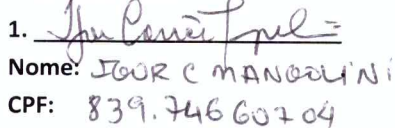 1.
Nome: IGOR C MANGOLINI
CPF: 839.746 607 04